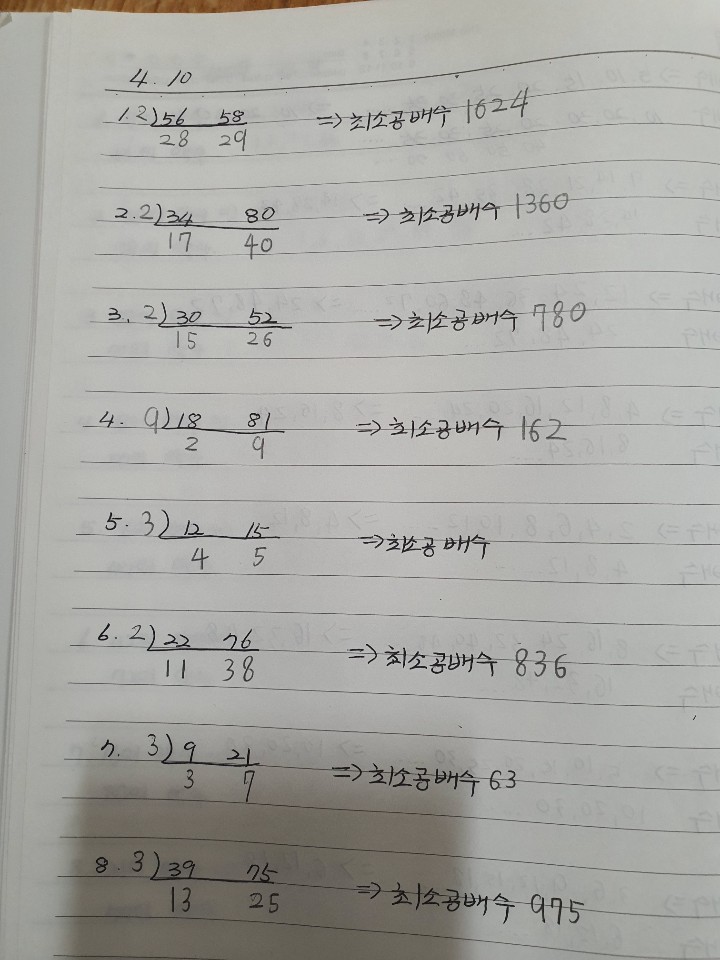 4. 10
1. 2) 56 58 => 최소공배수 1624
28 29
2. 2) 34 80 => 최소공배수 1360
17 40
3. 2) 30 52 => 최소공배수 780
15 26
4. 9) 18 81 => 최소공배수 162
2 9
5. 3) 12 15 => 최소공배수
4 5
6. 2) 22 76 => 최소공배수 836
11 38
7. 3) 9 21 => 최소공배수 63
3 7
8. 3) 39 75 => 최소공배수 975
13 25